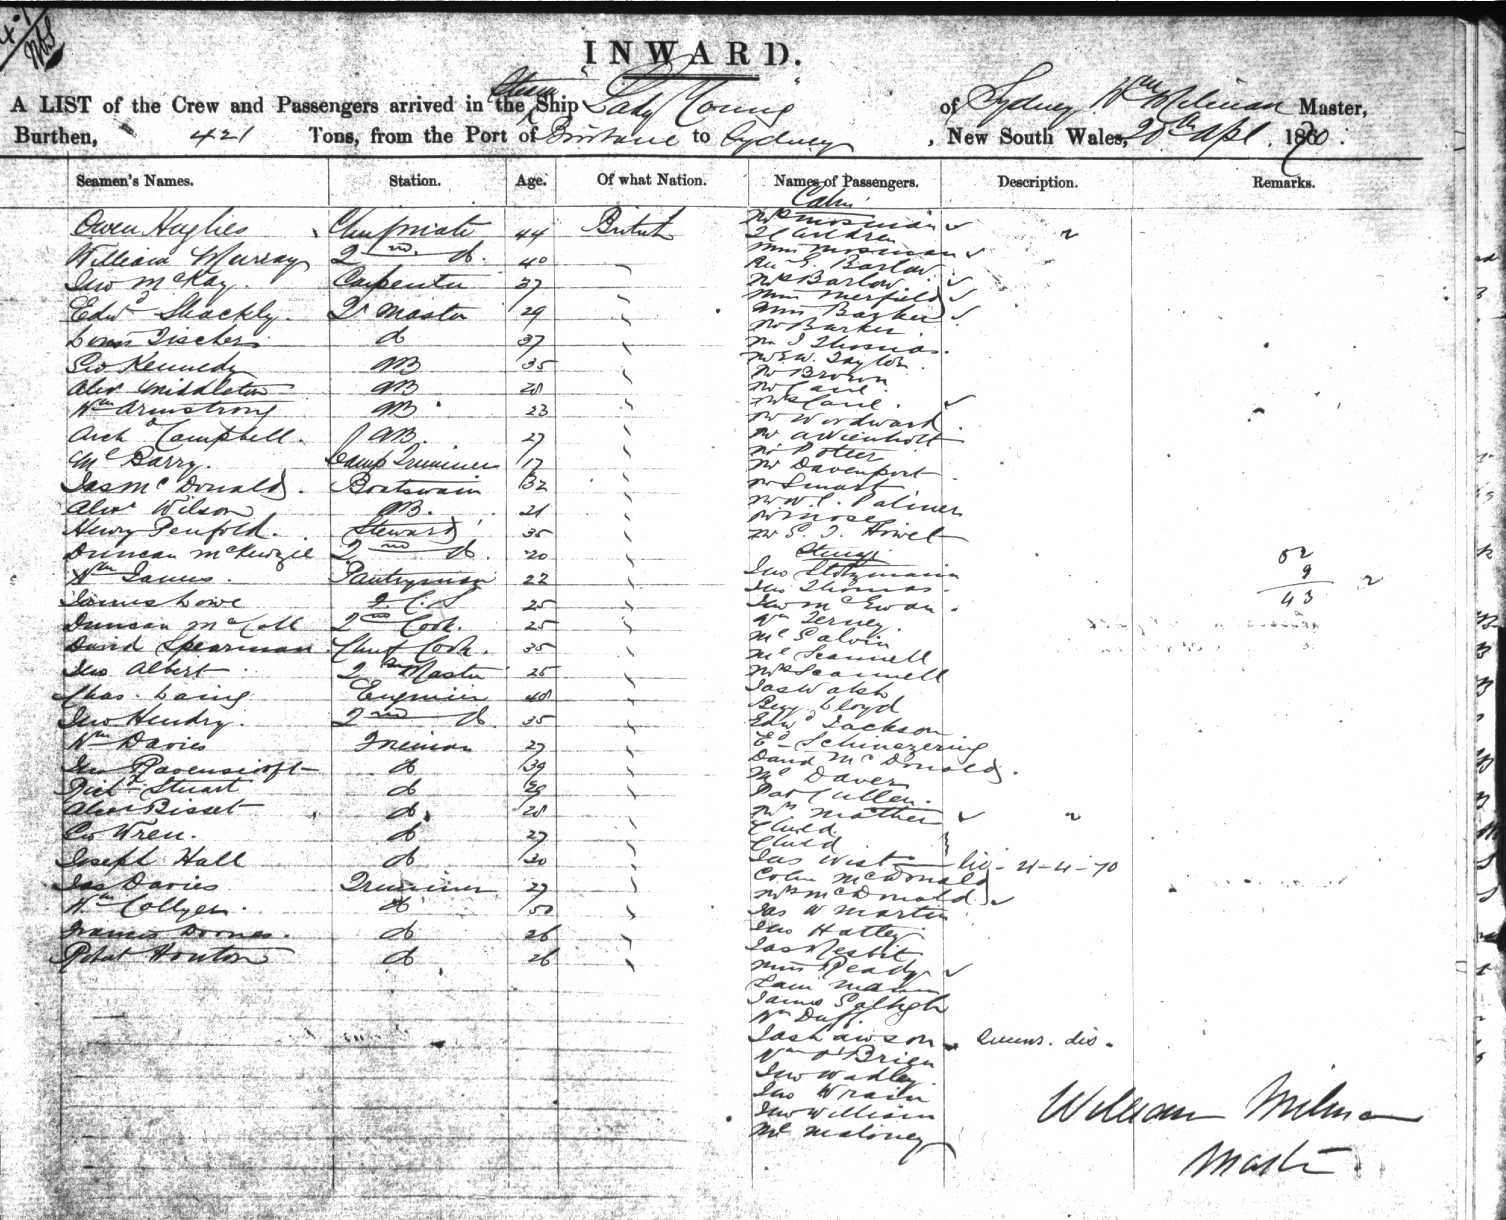 INWARD.
A LIST of the Crew and Passengers arrived in the Steam Ship "Lady Young" of Sydney Wm Milman Master,
Burthen, 421 Tons, from the Port of Brisbane to Sydney, New South Wales, 20th Apl. 1870.
Seamen's Names. Station. Age. Of what Nation. Names of Passengers. Description. Remarks.
Owen Hughes Chief mate 44 British
William Murray 2nd do. 40
Jno McKay. Carpenter 37
Edwd Shackly. Qr Master 29
Fischer do 37
Geo Kennedy AB 35
Alexr Middleton AB 28
Wm Armstrong AB 23
Archd Campbell. AB. 27
Ml Barry. Lamp Trimmer 17
Jas McDonald. Boatswain 32
Alexr Wilson AB. 21
Henry Penfold. Steward 35
Duncan McKenzie 2nd do. 20
Wm James. Pantryman 22
James Lowe 2. C. S 25
Duncan McColl 2nd Cook. 25
David Spearman. Chief Cook. 35
Jno Albert Qr Master 25
Chas. Laing Engineer 40
Jno Hendry. 2nd do 35
Wm Davies Fireman 27
Jno Ravenscroft do 39
Richd Stuart do 29
Alexr Bisset do. 28
Geo Wren. do 27
Joseph Hall do 30
Jas Davies Trimmer 27
Wm Collyer. do 50
Francis do 26
Robat Houton do 26
Cabin
Mrs Mosman
2 Children
Miss Mosman
Rev G. Barlow
Mrs Barlow
Miss Merfield
Miss Barker
Mr Barker
Mr J Thomas.
Mr E W. Taylor
Mr Brown
Mr Cane
Mrs Cane.
Mr Woodward.
Mr A Wienholt
Mr Potter
Mr Davenport
Mr Smart
Mr W. C. Palmer
Mr Mose
Mr G. T. Howel
Steerage
Jno Stotzmann
Jno Thomas.
Jno McEwan.
Wm Terney
Ml Galvin
Ml Scannell
Mrs Scannell
Jas Walsh
Benj Lloyd
Edwd Jackson.
Ed Schinezering
David McDonald.
Ml Daver
Pat Cullen.
Mrs Mather
Child
Child
Jas West - 21-4-70
Colin McDonald
Mrs McDonald
Jas W Martin
Jno Hatley
Jas Nesbit
Miss Ready
Sam Mann
James
Wm Duff.
Jas Lawson. dis.
Wm O'Brien
Jno Wadley.
Jno Wrain
Jno William
Ml Maloney
52
9
43
William Milman
Master